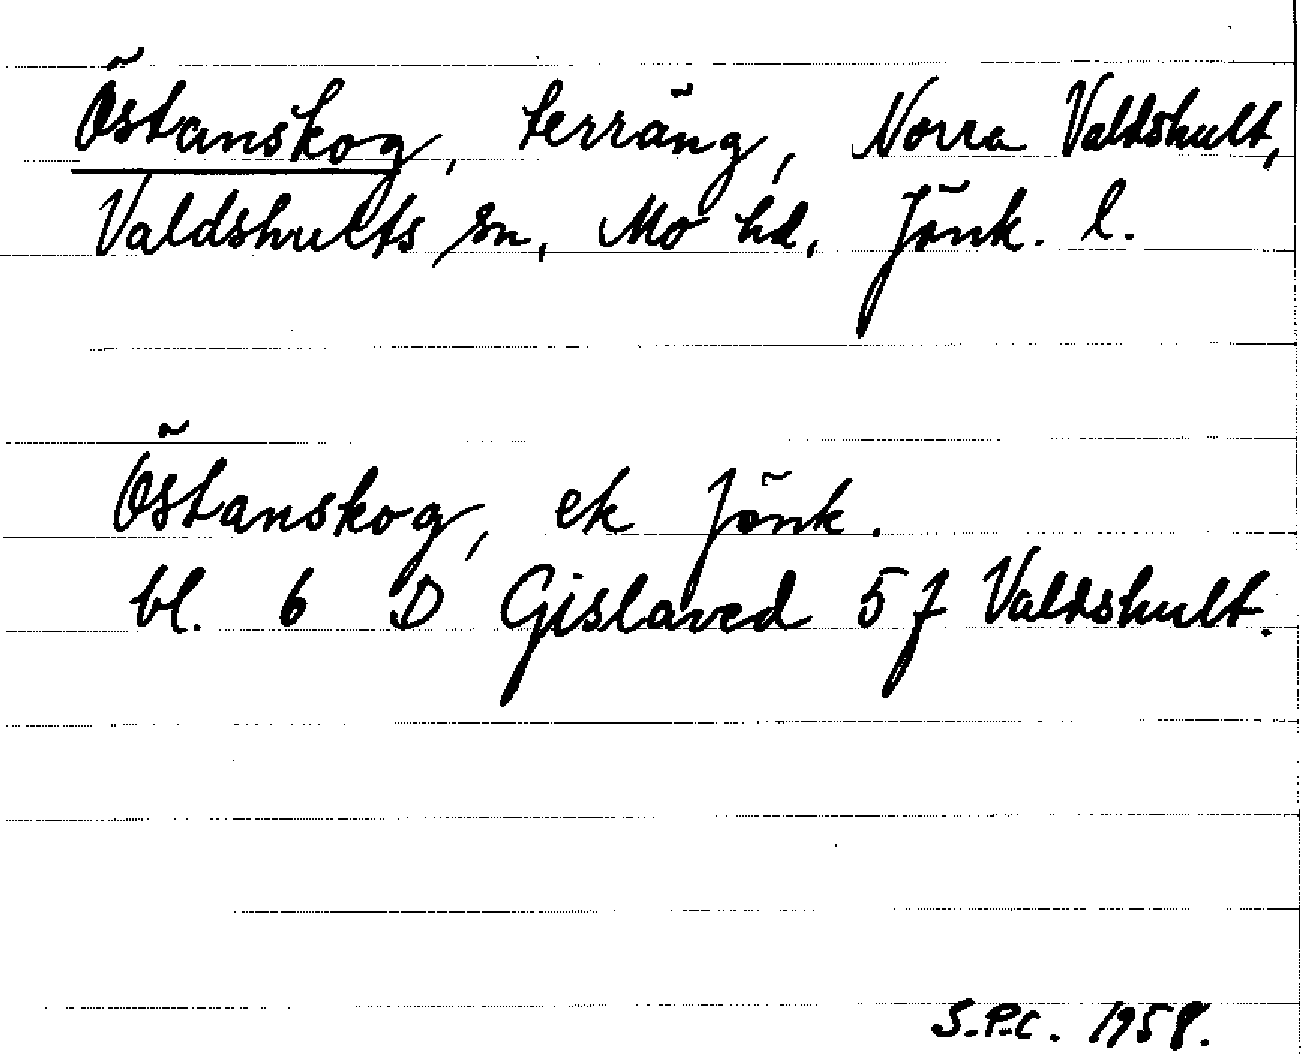 Östanskog, terräng, Norra Valdshult,
Valdshults sn, Mo hd, Jönk. l.
Östanskog, ek Jönk.
bl. 6 D Gislaved 5 f Valdshult.
S.P.C. 1958.